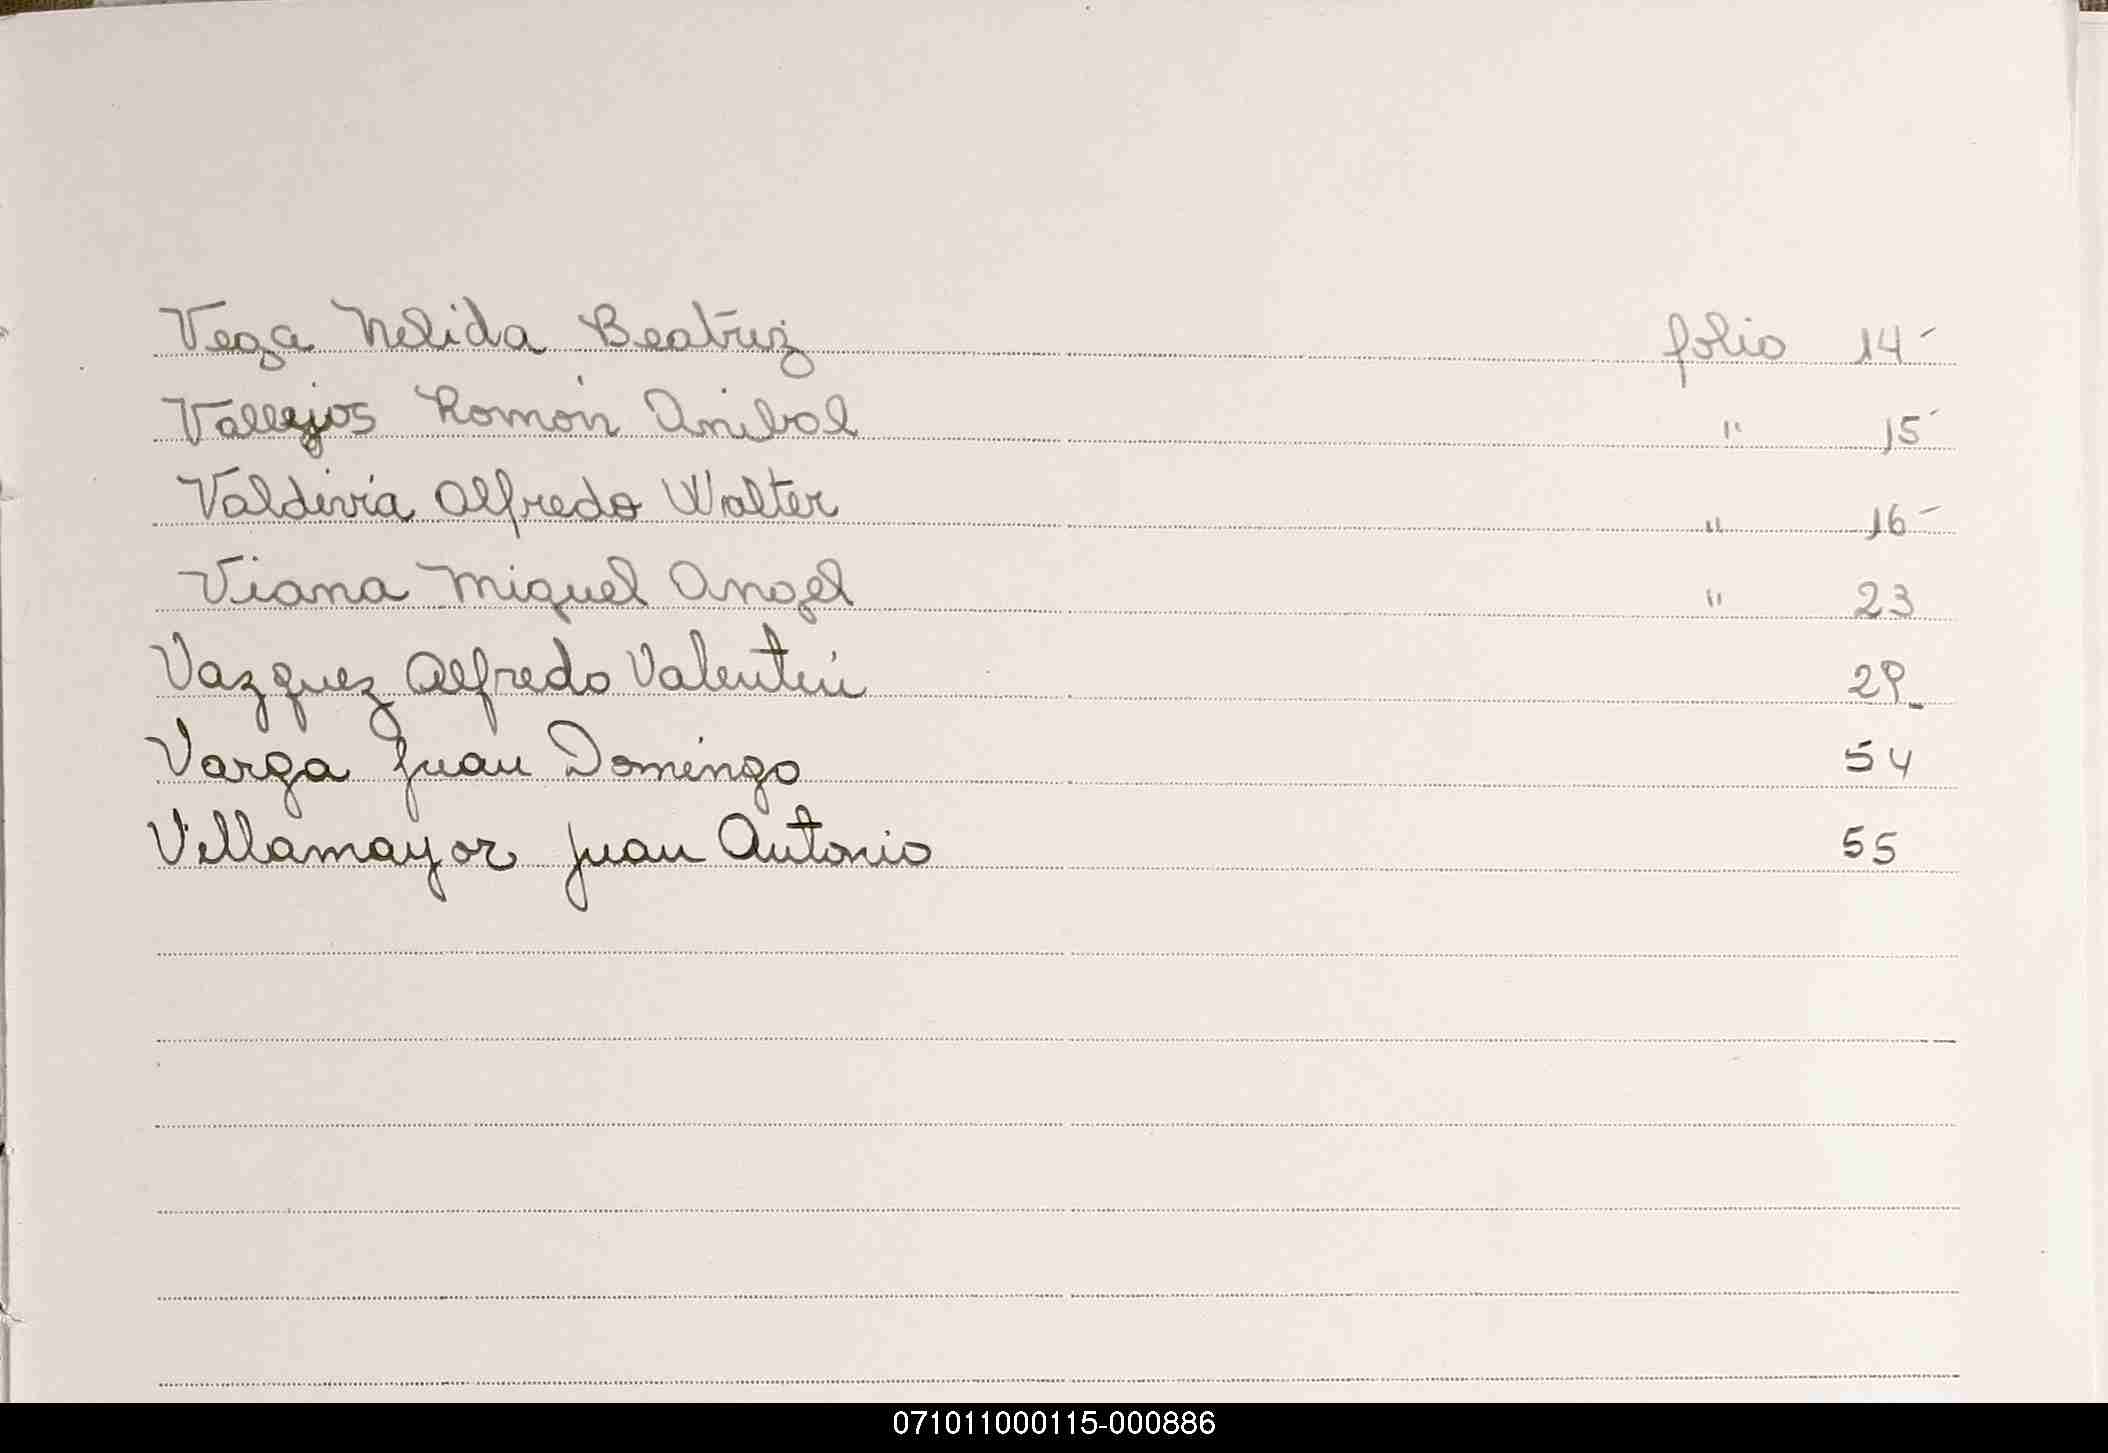 Vega Nelida Beatriz folio 14-
Vallejos Román Anibal " 15
Valdivia Alfredo Walter " 16-
Viana Miguel Angel " 23
Vazquez Alfredo Valentín 29-
Varga Juan Domingo 54
Villamayor Juan Antonio 55
071011000115-000886